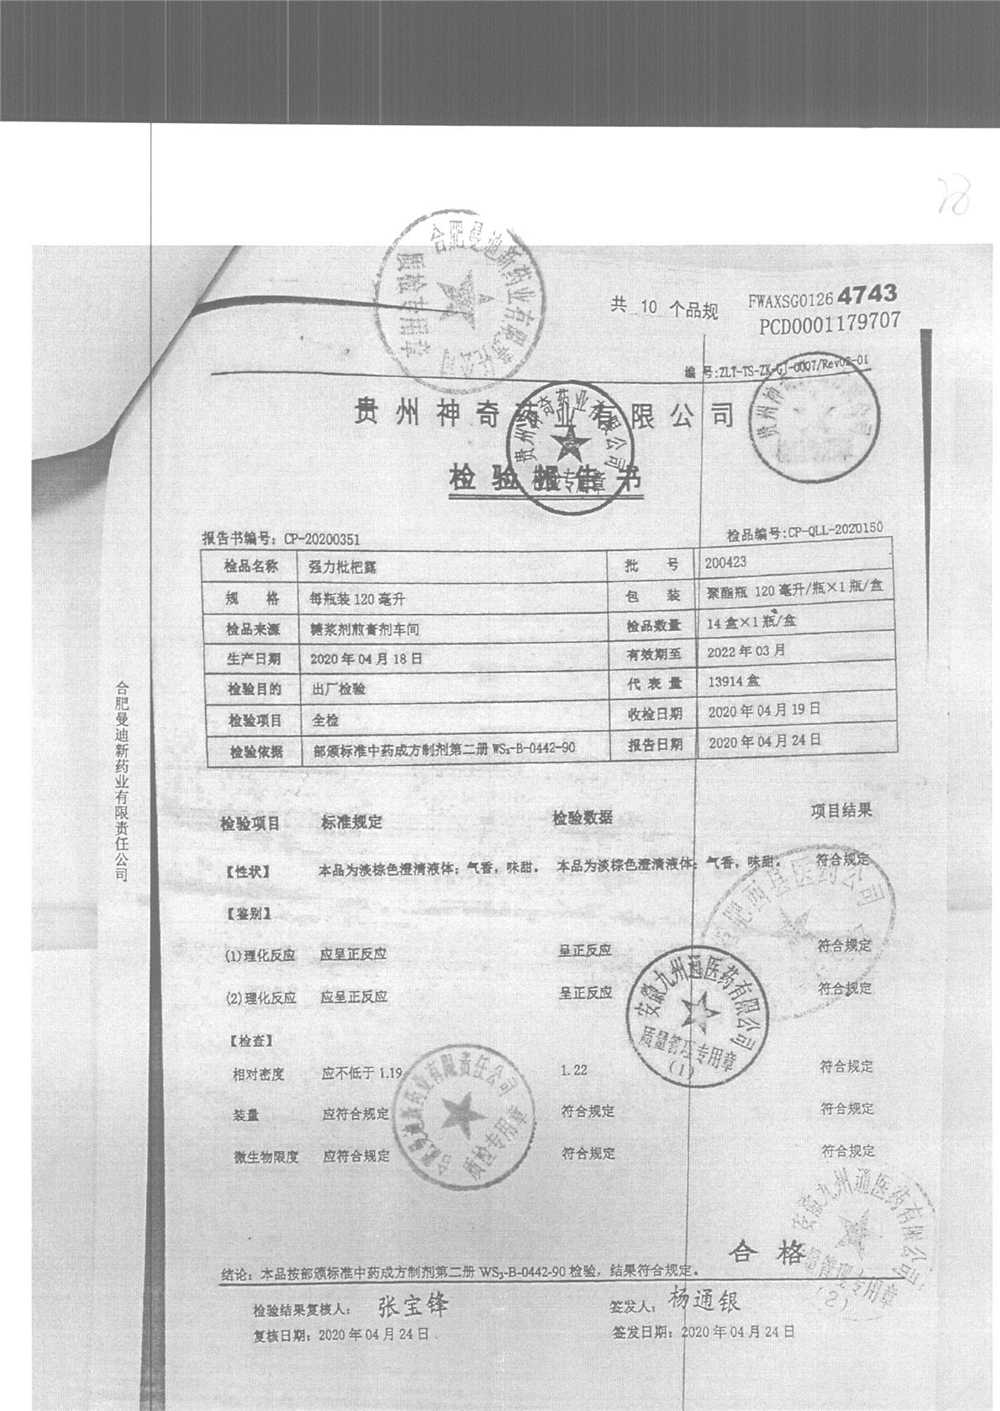 28
合肥曼迪新药业有限责任公司
质检专用章
共 10 个品规
FWAXSG01264743
PCD0001179707
编 号:ZLT-TS-ZK-GJ-0007/Rev02-01
贵州神奇药业有限公司
检验报告书
贵州神奇药业有限公司
检验专用章
贵州神
报告书编号: CP-20200351
检品编号:CP-QLL-2020150
检品名称 强力枇杷露 批 号 200423
规 格 每瓶装120毫升 包 装 聚酯瓶 120毫升/瓶×1瓶/盒
检品来源 糖浆剂煎膏剂车间 检品数量 14盒×1瓶/盒
生产日期 2020年04月18日 有效期至 2022年03月
检验目的 出厂检验 代表量 13914盒
检验项目 全检 收检日期 2020年04月19日
检验依据 部颁标准中药成方制剂第二册WS₃-B-0442-90 报告日期 2020年04月24日
合肥曼迪新药业有限责任公司
检验项目 标准规定 检验数据 项目结果
【性状】 本品为淡棕色澄清液体；气香，味甜。 本品为淡棕色澄清液体；气香，味甜。 符合规定
【鉴别】
(1)理化反应 应呈正反应 呈正反应 符合规定
(2)理化反应 应呈正反应 呈正反应 符合规定
【检查】
相对密度 应不低于1.19 1.22 符合规定
装量 应符合规定 符合规定 符合规定
微生物限度 应符合规定 符合规定 符合规定
安徽九州通医药有限公司
质量管理专用章
(1)
曼迪新药业有限责任公司
质检专用章
安徽九州通医药有限公司
质量管理专用章
(2)
合格
结论：本品按部颁标准中药成方制剂第二册 WS₃-B-0442-90 检验，结果符合规定。
检验结果复核人： 张宝锋 签发人： 杨通银
复核日期：2020年04月24日 签发日期：2020年04月24日